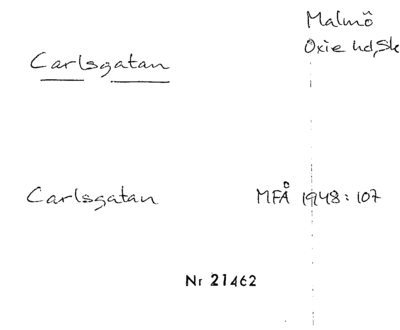 Malmö
Carlsgatan
Oxie hd, Sk
Carlsgatan MFÅ 1948:107
Nr 21462